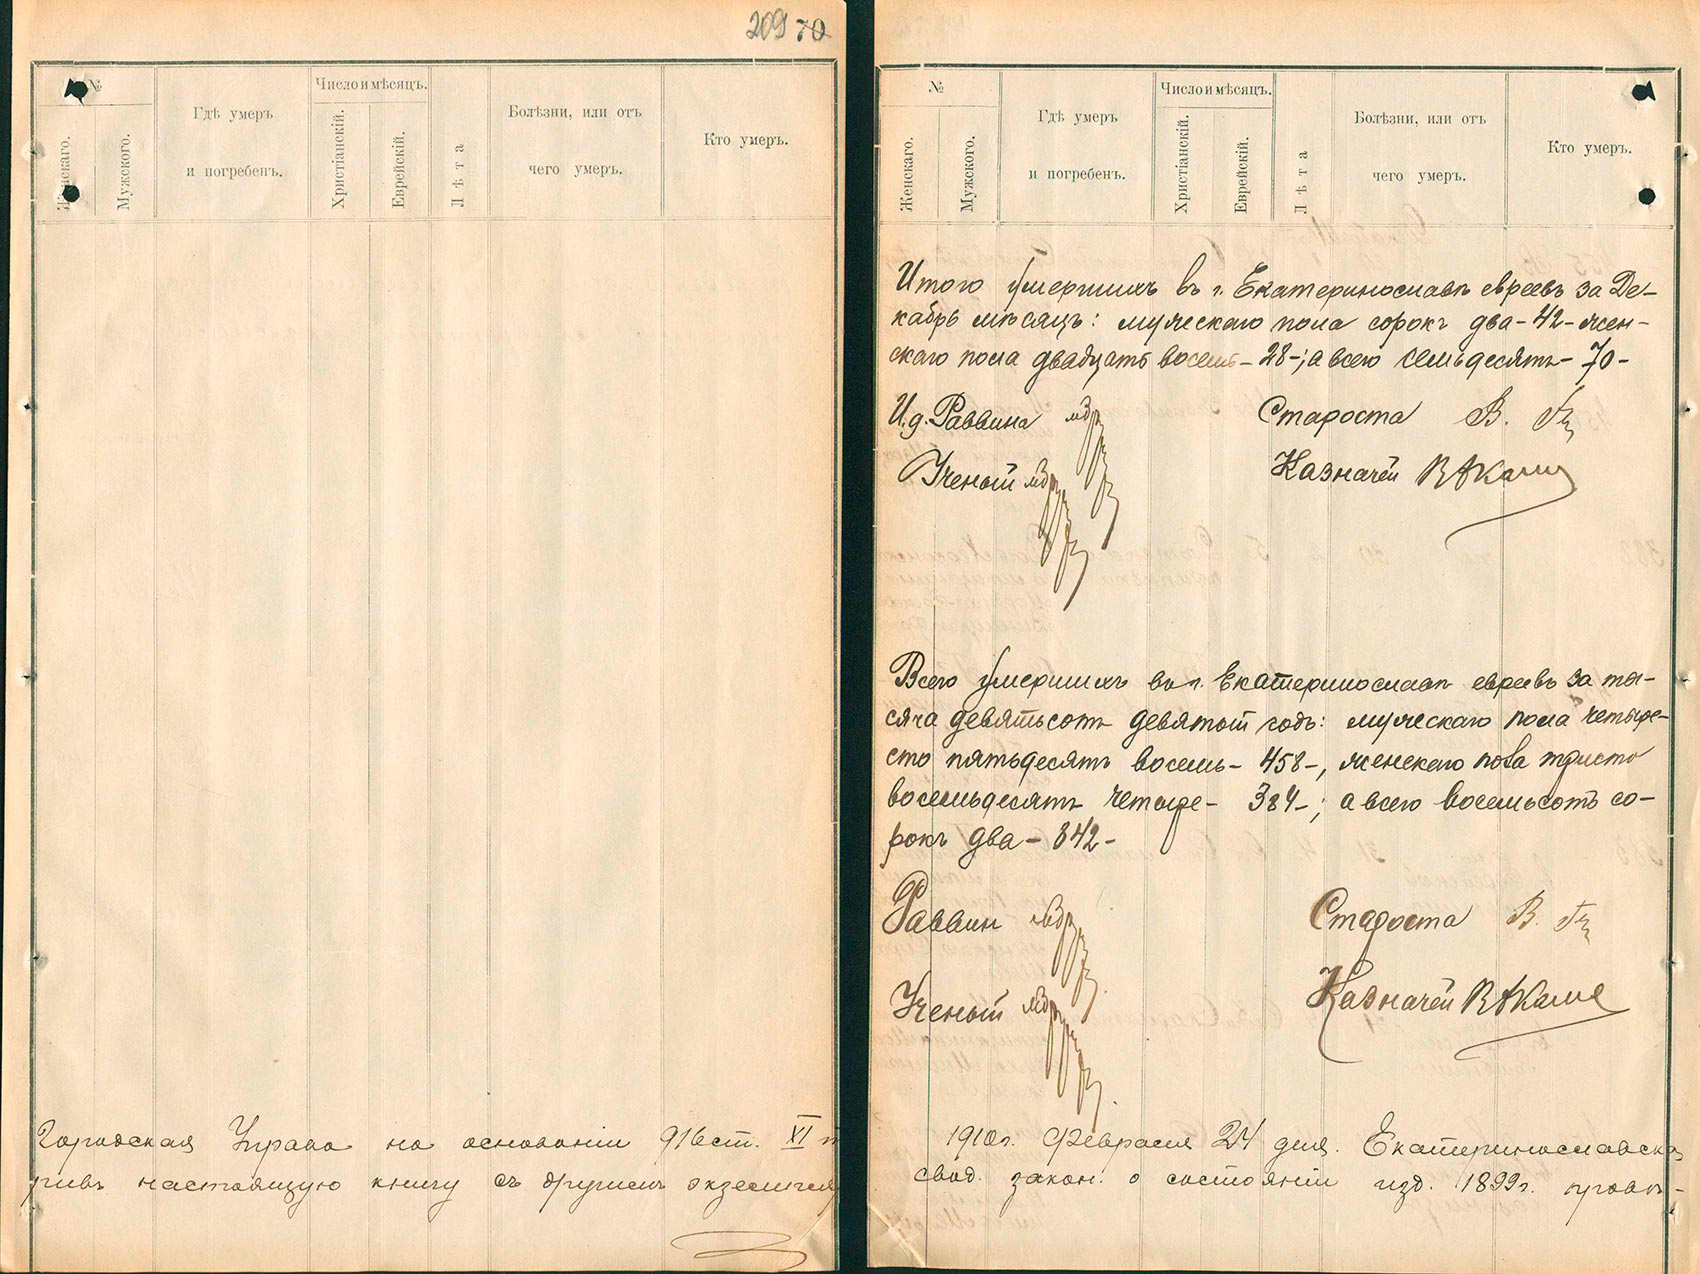 209 70
№
Женскаго.
Мужского.
Гдѣ умеръ
и погребенъ.
Число и мѣсяцъ.
Христіанскій.
Еврейскій.
Лѣта
Болѣзни, или отъ
чего умеръ.
Кто умеръ.
Городская Управа на основаніи 916 ст. XI т
ривъ настоящую книгу съ другимъ экземпля
№
Женскаго.
Мужского.
Гдѣ умеръ
и погребенъ.
Число и мѣсяцъ.
Христіанскій.
Еврейскій.
Лѣта
Болѣзни, или отъ
чего умеръ.
Кто умеръ.
Итого умершихъ въ г. Екатеринославѣ евреевъ за Де-
кабрь мѣсяцъ: мужескаго пола сорокъ два - 42 - жен-
скаго пола двадцать восемь - 28 -; а всего семьдесятъ - 70 -
И.д. Раввина Староста В.
Ученый Казначей
Всего умершихъ въ г. Екатеринославѣ евреевъ за ты-
сяча девятьсотъ девятый годъ: мужескаго пола четыре-
сто пятьдесятъ восемь - 458 -, женскаго пола триста
восемьдесятъ четыре - 384 -; а всего восемьсотъ со-
рокъ два - 842 -
Раввин Староста В.
Ученый Казначей
1910 г. Февраля 24 дня. Екатеринославска
свод. закон. о состояніи изд. 1899 г. провѣ-